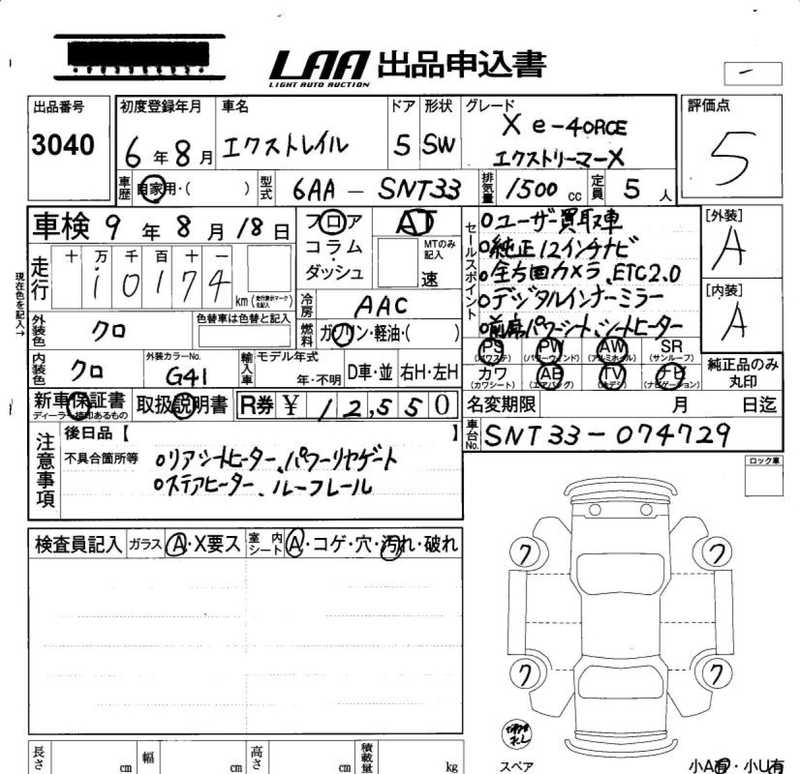 LAA 出品申込書
LIGHT AUTO AUCTION
出品番号
3040
初度登録年月
6年8月
車名
エクストレイル
ドア
5
形状
SW
グレード
X e-4ORCE
エクストリーマーX
評価点
5
車歴
自家用・( )
型式
6AA-SNT33
排気量
1500 cc
定員
5人
車検 9年8月18日
フロア
コラム・
ダッシュ
AT
MTのみ記入
速
セールスポイント
○ユーザー買取車
○純正12インチナビ
○全方囲カメラ、ETC2.0
○デジタルインナーミラー
○前席パワーシート、シートヒーター
[外装]
A
[内装]
A
現在色を記入→
走行
十 万 千 百 十 一
1 0 1 7 4 km
冷房
AAC
外装色
クロ
色替車は色替と記入
燃料
ガソリン・軽油・( )
内装色
クロ
外装カラーNo.
G41
輸入車
モデル年式
年・不明
D車・並
右H・左H
PS (パワステ)
PW (パワーウィンド)
AW (アルミホイル)
SR (サンルーフ)
カワ (カワシート)
AB (エアバック)
TV (ナビ)
ナビ (ナビゲーション)
純正品のみ丸印
新車保証書
取扱説明書
R券 ¥ 12,550
名変期限
月
日迄
車台No.
SNT33-074729
注意事項
後日品【 】
不具合箇所等
○リアシートヒーター、パワーリヤゲート
○ステアヒーター、ルーフレール
ロック車
検査員記入
ガラス
A・X要ス
室内シート
A・コゲ・穴・汚れ・破れ
ク
ク
ク
ク
スペア
長さ
cm
幅
cm
高さ
cm
積載量
kg
小A有・小U有